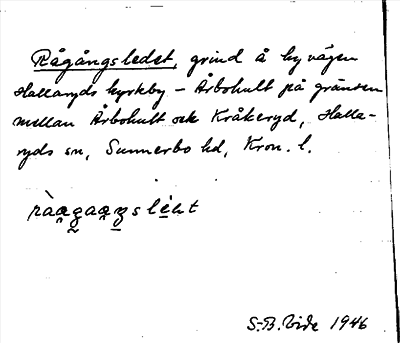 Rågångsledet, grind å byvägen
Hallaryds kyrkby – Årbohult på gränsen
mellan Årbohult och Kråkeryd, Halla-
ryds sn, Sunnerbo hd, Kron. l.
S.-B. Vide 1946